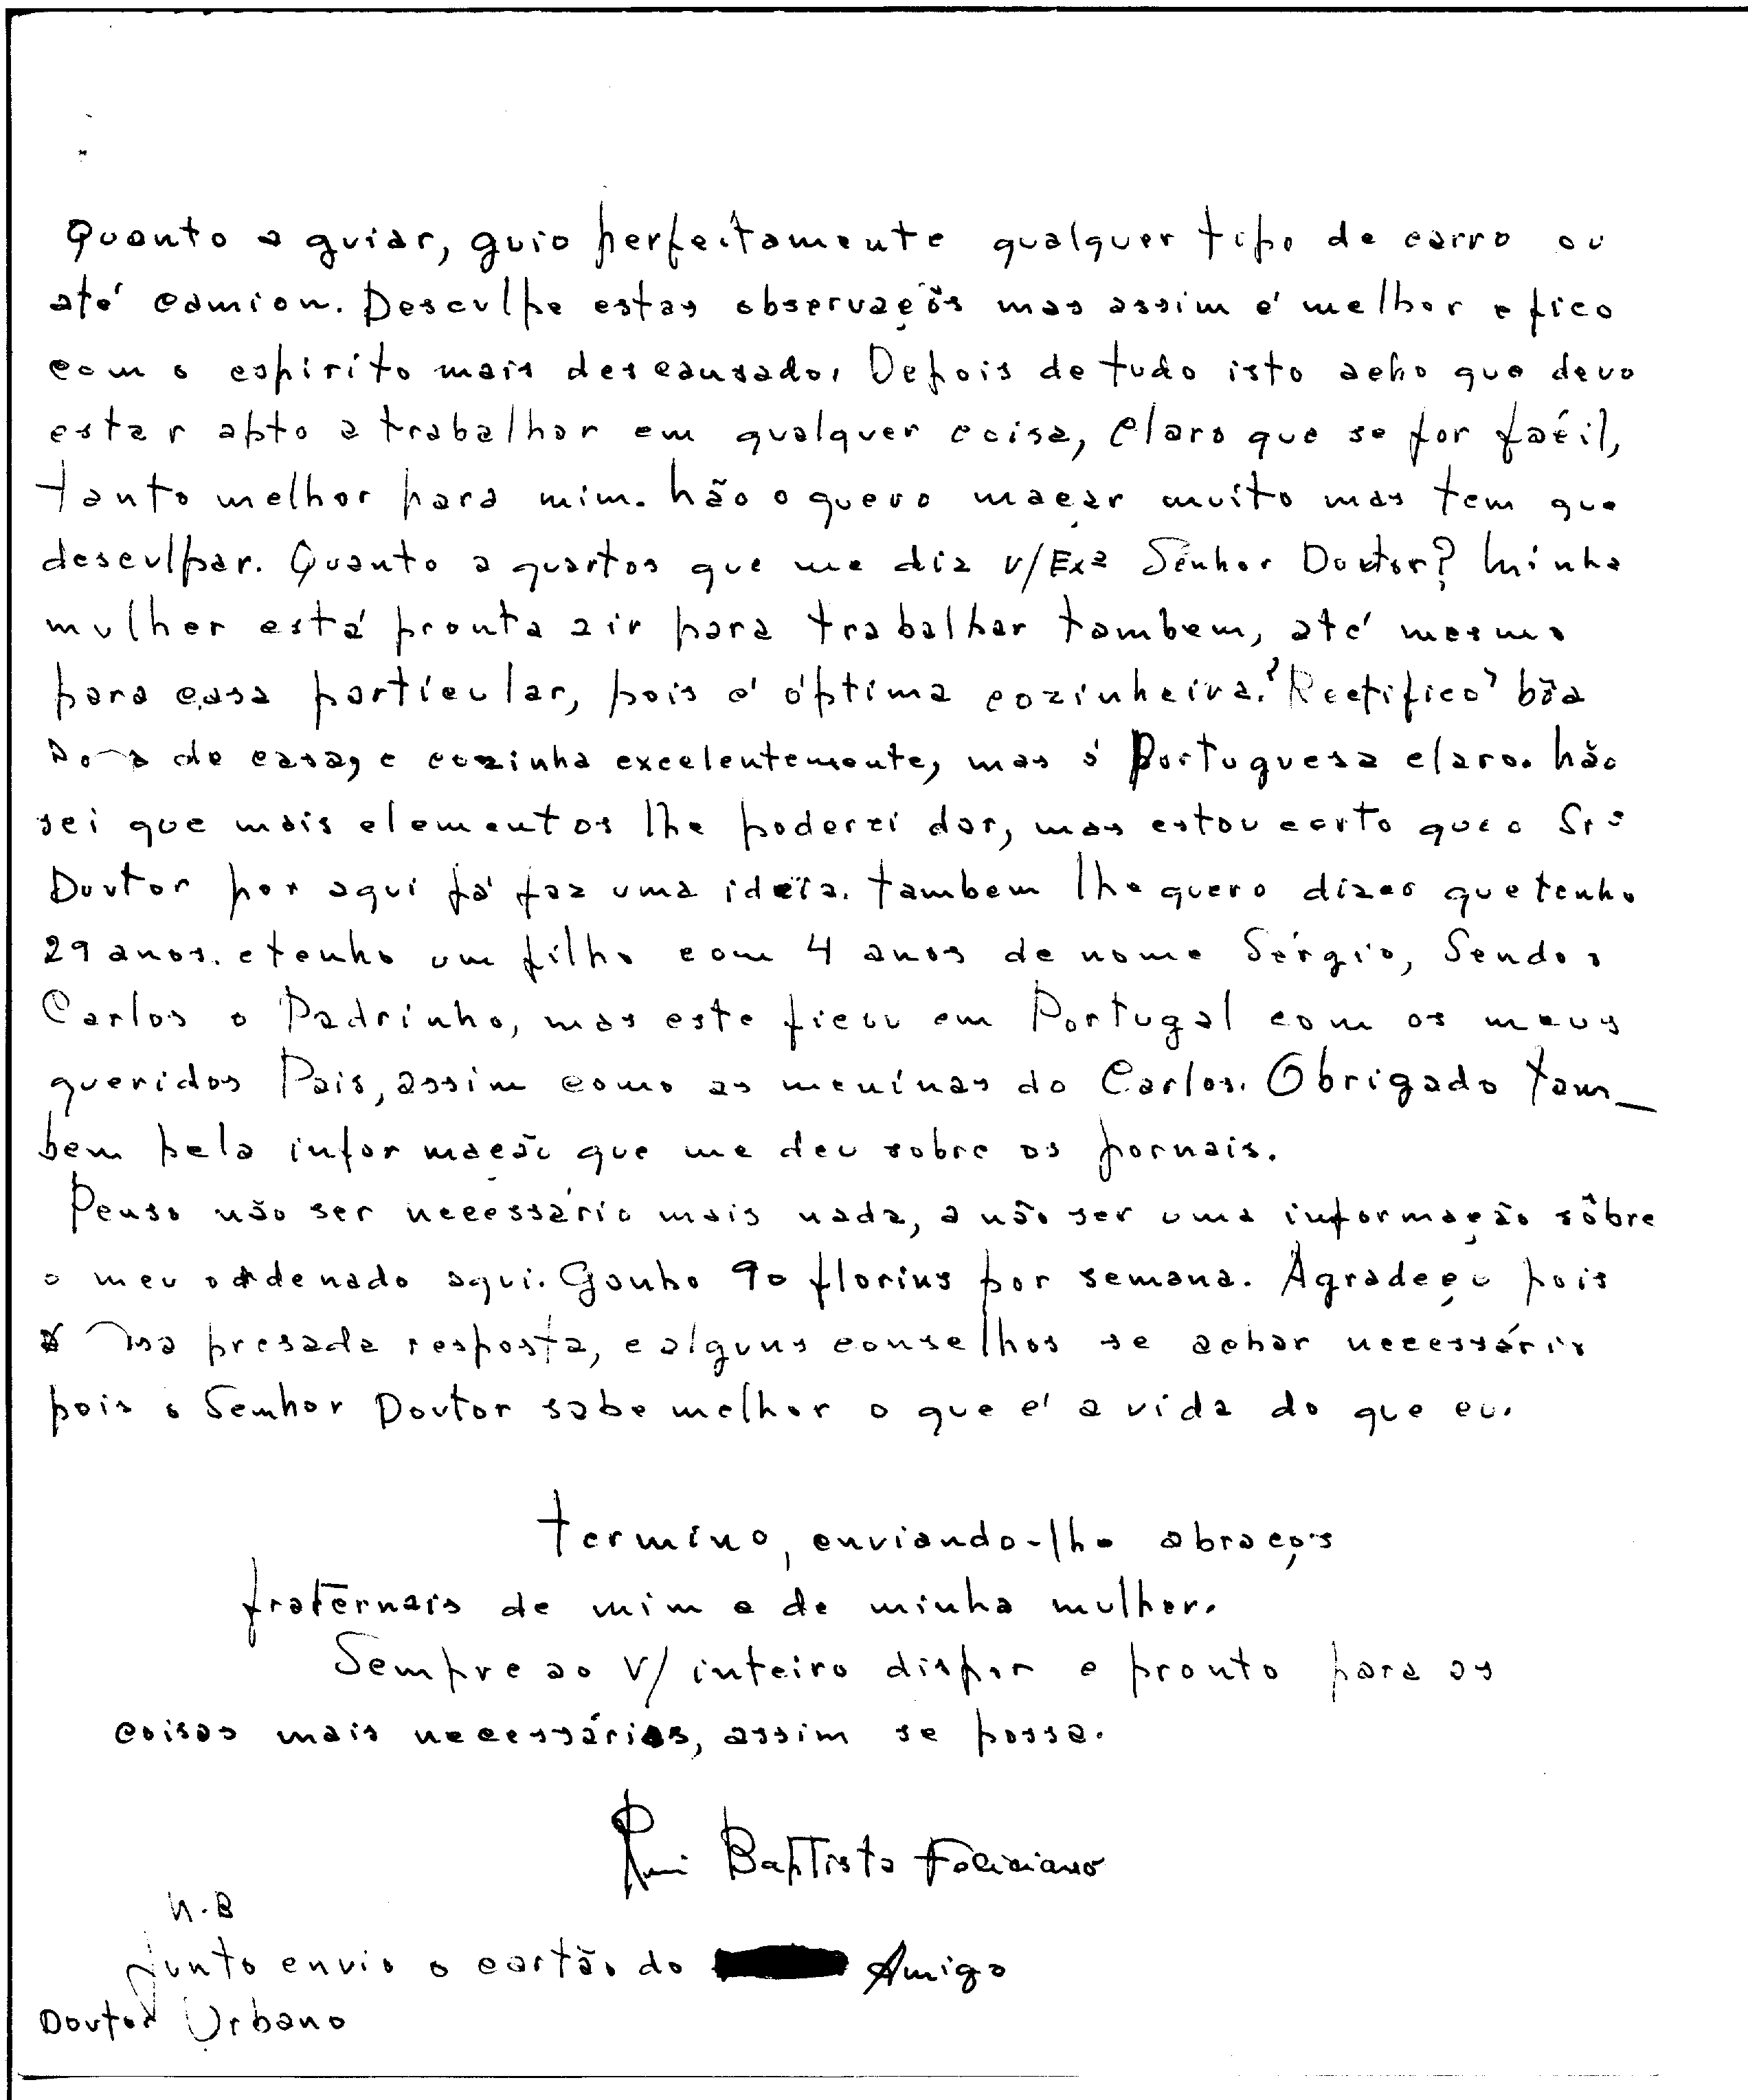 Quanto a guiar, guio perfeitamente qualquer tipo de carro ou
até camion. Desculpe estas observaçõs mas assim é melhor e fico
com o espirito mais descansado. Depois de tudo isto acho que devo
estar apto a trabalhar em qualquer coisa, Claro que se for facil,
tanto melhor para mim. Não o quero maçar muito mas tem que
desculpar. Quanto a quartos que me diz V/Exª Senhor Doutor? Minha
mulher está pronta a ir para trabalhar tambem, até mesmo
para casa particular, pois é óptima cozinheira. "Rectifico" bôa
de casa, e cozinha excelentemente, mas á Portuguesa claro. Não
sei que mais elementos lhe poderei dar, mas estou certo que o Srº
Doutor por aqui já faz uma ideia. Tambem lhe quero dizer que tenho
29 anos. e tenho um filho com 4 anos de nome Sérgio, Sendo o
Carlos o Padrinho, mas este ficou em Portugal com os meus
queridos Pais, assim como as meninas do Carlos. Obrigado tam_
bem pela informação que me deu sobre os jornais.
Penso não ser necessário mais nada, a não ser uma informação sôbre
o meu ordenado aqui. Ganho 90 florins por semana. Agradeço pois
presada resposta, e alguns conselhos se achar necessário
pois o Senhor Doutor sabe melhor o que é a vida do que eu.
Termino, enviando-lhe abraços
fraternais de mim e de minha mulher.
Sempre ao V/ inteiro dispor e pronto para as
coisas mais necessárias, assim se possa.
Rui Baptista Feliciano
N.B
Junto envio o cartão do Amigo
Doutor Urbano